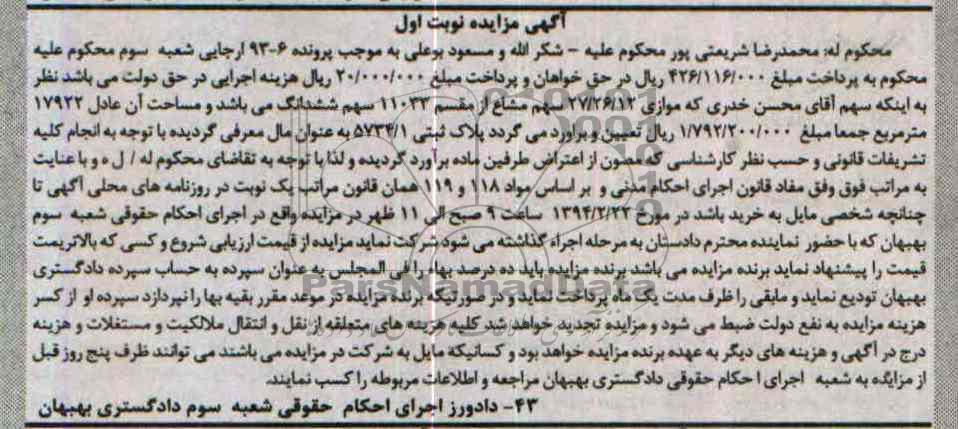 آگهی مزایده نوبت اول
محکوم له: محمدرضا شریعتی پور محکوم علیه – شکر الله و مسعود بوعلی به موجب پرونده ۶-۹۳ ارجایی شعبه سوم محکوم علیه
محکوم به پرداخت مبلغ ۴۲۶/۱۱۶/۰۰۰ ریال در حق خواهان و پرداخت مبلغ ۲۰/۰۰۰/۰۰۰ ریال هزینه اجرایی در حق دولت می باشد نظر
به اینکه سهم آقای محسن خدری که موازی ۲۷/۲۶/۱۲ سهم مشاع از مقسم ۱۱۰۳۳ سهم ششدانگ می باشد و مساحت آن عادل ۱۷۹۲۲
مترمربع جمعا مبلغ ۱/۷۹۲/۲۰۰/۰۰۰ ریال تعیین وبراورد می گردد پلاک ثبتی ۵۷۳۴/۱ به عنوان مال معرفی گردیده با توجه به انجام کلیه
تشریفات قانونی و حسب نظر کارشناسی که مصون از اعتراض طرفین ماده بر آورد گردیده و لذا با توجه به تقاضای محکوم له / ل ه و با عنایت
به مراتب فوق وفق مفاد قانون اجرای احکام مدنی و بر اساس مواد ۱۱۸ و ۱۱۹ همان قانون مراتب یک نوبت در روزنامه های محلی آگهی تا
چنانچه شخصی مایل به خرید باشد در مورخ ۱۳۹۴/۲/۲۲ ساعت ۹ صبح الی ۱۱ ظهر در مزایده واقع در اجرای احکام حقوقی شعبه سوم
بهبهان که با حضور نماینده محترم دادستان به مرحله اجراء گذاشته می شود شرکت نماید مزایده از قیمت ارزیابی شروع و کسی که بالاتریمت
قیمت را پیشنهاد نماید برنده مزایده می باشد برنده مزایده باید ده درصد بهاء را فی المجلس به عنوان سپرده به حساب سپرده دادگستری
بهبهان تودیع نماید و مابقی را ظرف مدت یک ماه پرداخت نماید و در صورتیکه برنده مزایده در موعد مقرر بقیه بها را نپردازد سپرده او از کسر
هزینه مزایده به نفع دولت ضبط می شود و مزایده تجدید خواهد شد کلیه هزینه های متعلقه از نقل و انتقال ملالکیت و مستغلات و هزینه
درج در آگهی و هزینه های دیگر به عهده برنده مزایده خواهد بود و کسانیکه مایل به شرکت در مزایده می باشند می توانند ظرف پنج روز قبل
از مزایده به شعبه اجرای احکام حقوقی دادگستری بهبهان مراجعه و اطلاعات مربوطه را کسب نمایند.
۴۳- دادورز اجرای احکام حقوقی شعبه سوم دادگستری بهبهان
ParsNamadData